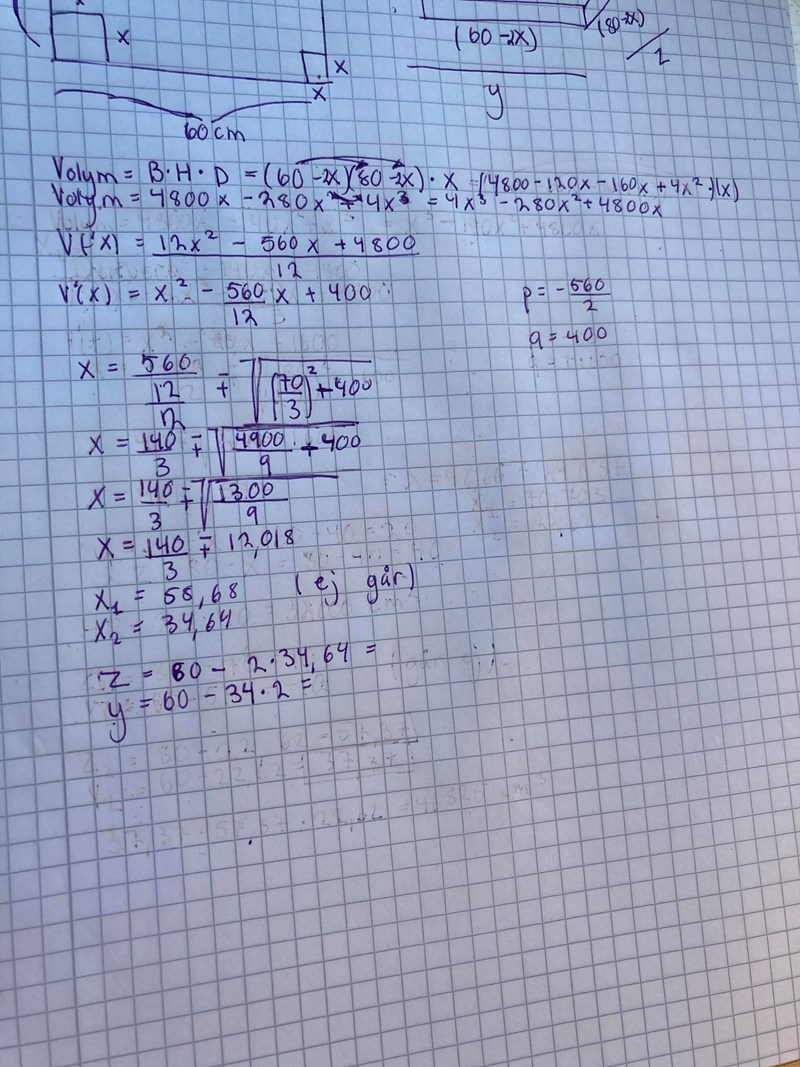 x
x
x
60 cm
(60-2x)
(80-2x)
z
y
Volym = B·H·D = (60-2x)(80-2x)·x (4800-120x-160x+4x²)(x)
Volym = 4800x - 280x² + 4x³ = 4x³ - 280x² + 4800x
V'(x) = 12x² - 560x + 4800 / 12
V'(x) = x² - 560/12 x + 400
p = -560/2
q = 400
x = 560/12/2 ∓ √((70/3)² + 400)
x = 140/3 ∓ √(4900/9 + 400)
x = 140/3 ∓ √(1300/9)
x = 140/3 ∓ 12,018
x₁ = 58,68 (ej går)
x₂ = 34,64
z = 80 - 2·34,64 =
y = 60 - 34·2 =